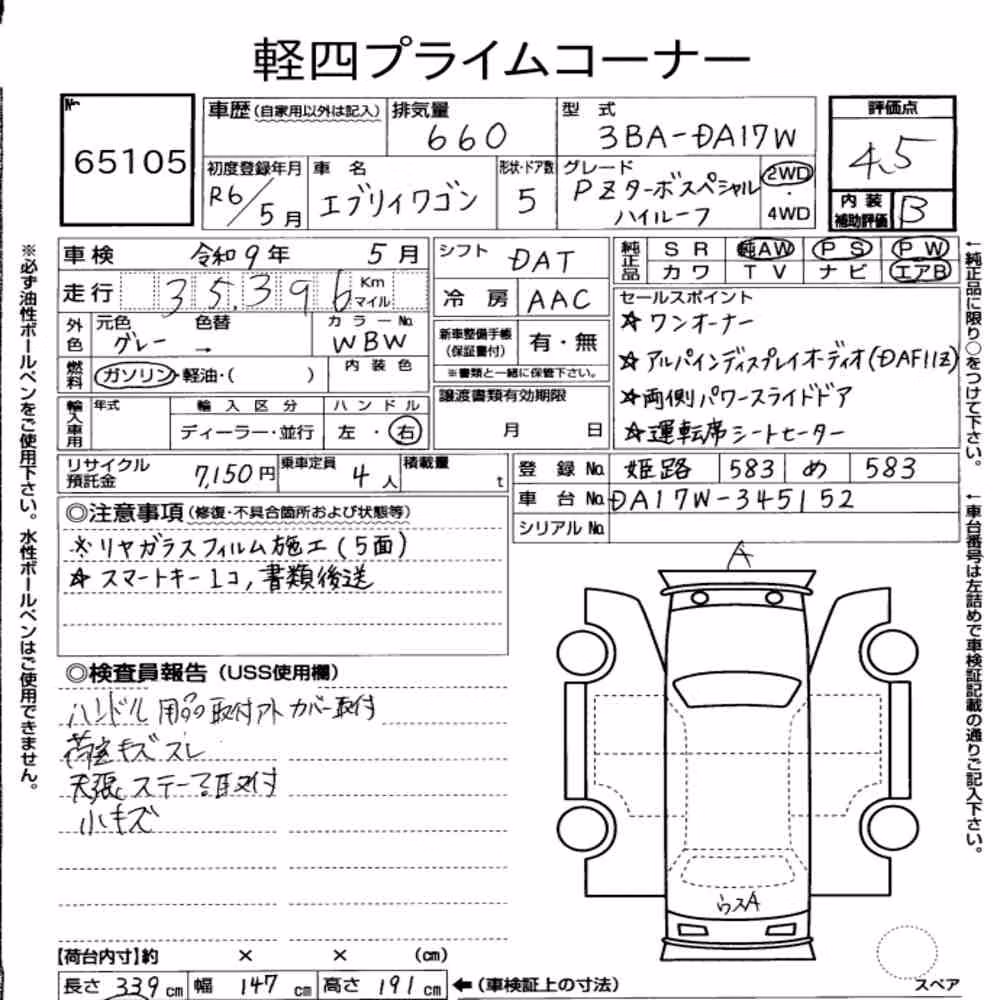 軽四プライムコーナー
No. 65105
車歴 (自家用以外は記入)
排気量 660
型式 3BA-DA17W
評価点 4.5
初度登録年月 R6/5月
車名 エブリイワゴン
形状・ドア数 5
グレード PZターボスペシャル
ハイルーフ
2WD・4WD
内装補助評価 B
車検 令和9年 5月
シフト DAT
純正品 SR 純AW PS PW
カワ TV ナビ エアB
走行 35,396 Km マイル
冷房 AAC
セールスポイント
☆ワンオーナー
☆アルパインディスプレイオーディオ(DAF11Z)
☆両側パワースライドドア
☆運転席シートヒーター
外色 元色 グレー → 色替
カラーNo. WBW
新車整備手帳(保証書付) 有・無
※書類と一緒に保管下さい。
燃料 ガソリン・軽油・( )
内装色
譲渡書類有効期限
月 日
輸入車用 年式
輸入区分 ディーラー・並行
ハンドル 左・右
リサイクル預託金 7,150円
乗車定員 4人
積載量 t
登録No. 姫路 583 め 583
車台No. DA17W-345152
シリアルNo.
◎注意事項(修復・不具合箇所および状態等)
※リヤガラスフィルム施工(5面)
☆スマートキー1コ,書類後送
◎検査員報告(USS使用欄)
ハンドル 用品取付アト カバー取付
荷室キズスレ
天張ステー 取付
小キズ
A
ウスA
【荷台内寸】約 × × (cm)
長さ 339cm 幅 147cm 高さ 191cm ←(車検証上の寸法)
スペア
※必ず油性ボールペンをご使用下さい。水性ボールペンはご使用できません。
←純正品に限り○をつけて下さい。
←車台番号は左詰めで車検証記載の通りご記入下さい。